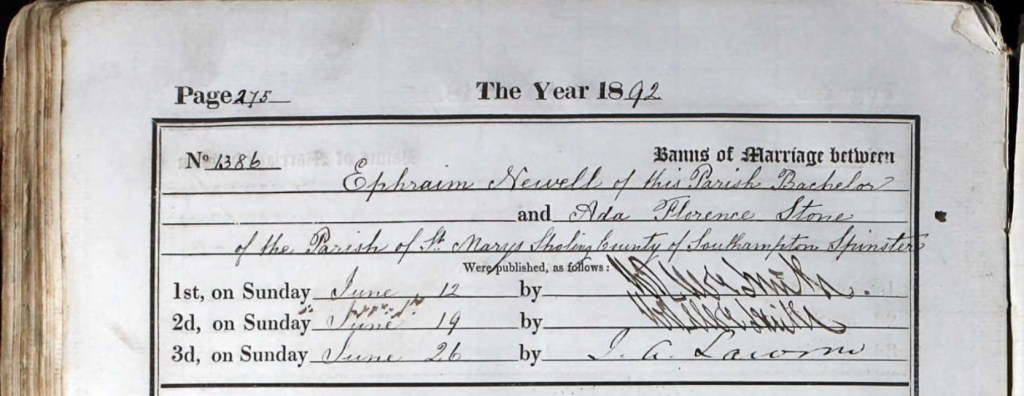 Page 275 The Year 1892
No 1386 Banns of Marriage between
Ephraim Newell of this Parish Bachelor
and Ada Florence Stone
of the Parish of St. Marys Sholing County of Southampton Spinster
Were published, as follows:
1st, on Sunday June 12 by
2d, on Sunday June 19 by Smith
3d, on Sunday June 26 by J. A.